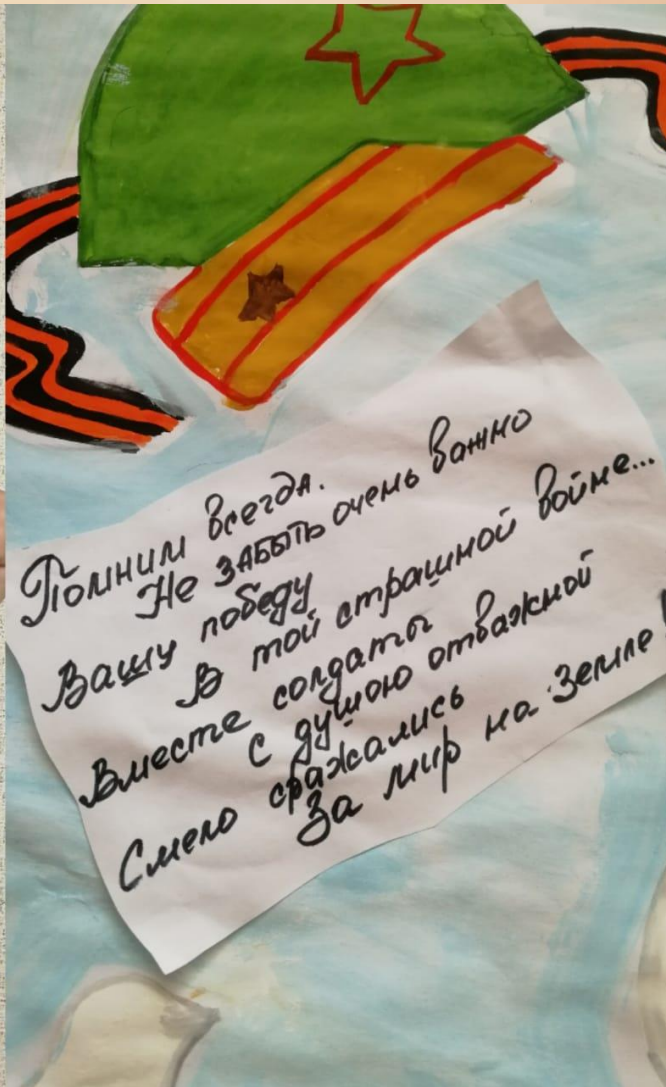 Помним всегда.
Не забыть очень важно
Вашу победу
В той страшной войне...
Вместе солдаты
с душою отважной
Смело сражались
За мир на Земле!